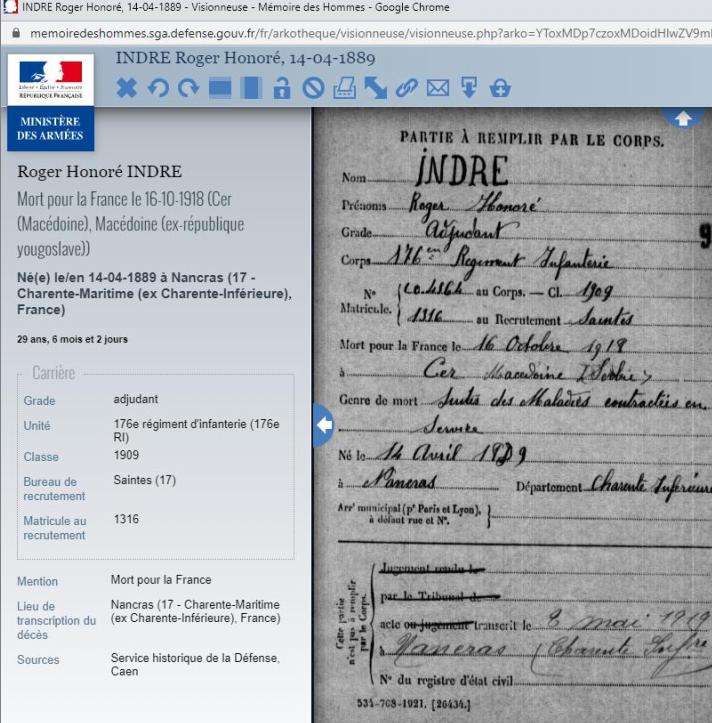 INDRE Roger Honoré, 14-04-1889 - Visionneuse - Mémoire des Hommes - Google Chrome
memoiredeshommes.sga.defense.gouv.fr/fr/arkotheque/visionneuse/visionneuse.php?arko=YToxMDp7czoxMDoidHlwZV9m
INDRE Roger Honoré, 14-04-1889
Liberté • Égalité • Fraternité
RÉPUBLIQUE FRANÇAISE
MINISTÈRE
DES ARMÉES
Roger Honoré INDRE
Mort pour la France le 16-10-1918 (Cer
(Macédoine), Macédoine (ex-république
yougoslave))
Né(e) le/en 14-04-1889 à Nancras (17 -
Charente-Maritime (ex Charente-Inférieure),
France)
29 ans, 6 mois et 2 jours
Carrière
Grade adjudant
Unité 176e régiment d'infanterie (176e
RI)
Classe 1909
Bureau de
recrutement Saintes (17)
Matricule au
recrutement 1316
Mention Mort pour la France
Lieu de
transcription du
décès Nancras (17 - Charente-Maritime
(ex Charente-Inférieure), France)
Sources Service historique de la Défense,
Caen
PARTIE À REMPLIR PAR LE CORPS.
Nom INDRE
Prénoms Roger Honoré
Grade Adjudant
9
Corps 176 Regiment Infanterie
N°
Matricule.
au Corps. — Cl. 1909
1316 au Recrutement Saintes
Mort pour la France le 16 Octobre 1918
à Cer Macedoine (Serbie)
Genre de mort Suites des Maladies contractées en
Service
Né le 14 Avril 1889
à Nancras Département Charente Inférieure
Arr' municipal (p' Paris et Lyon),
à défaut rue et N°.
Cette partie
n'est pas à remplir
par le Corps.
Jugement rendu le
par le Tribunal de
acte ou jugement transcrit le 8 mai 1919
à Nancras (Charente Infre
N° du registre d'état civil
534-708-1921. [26434.]